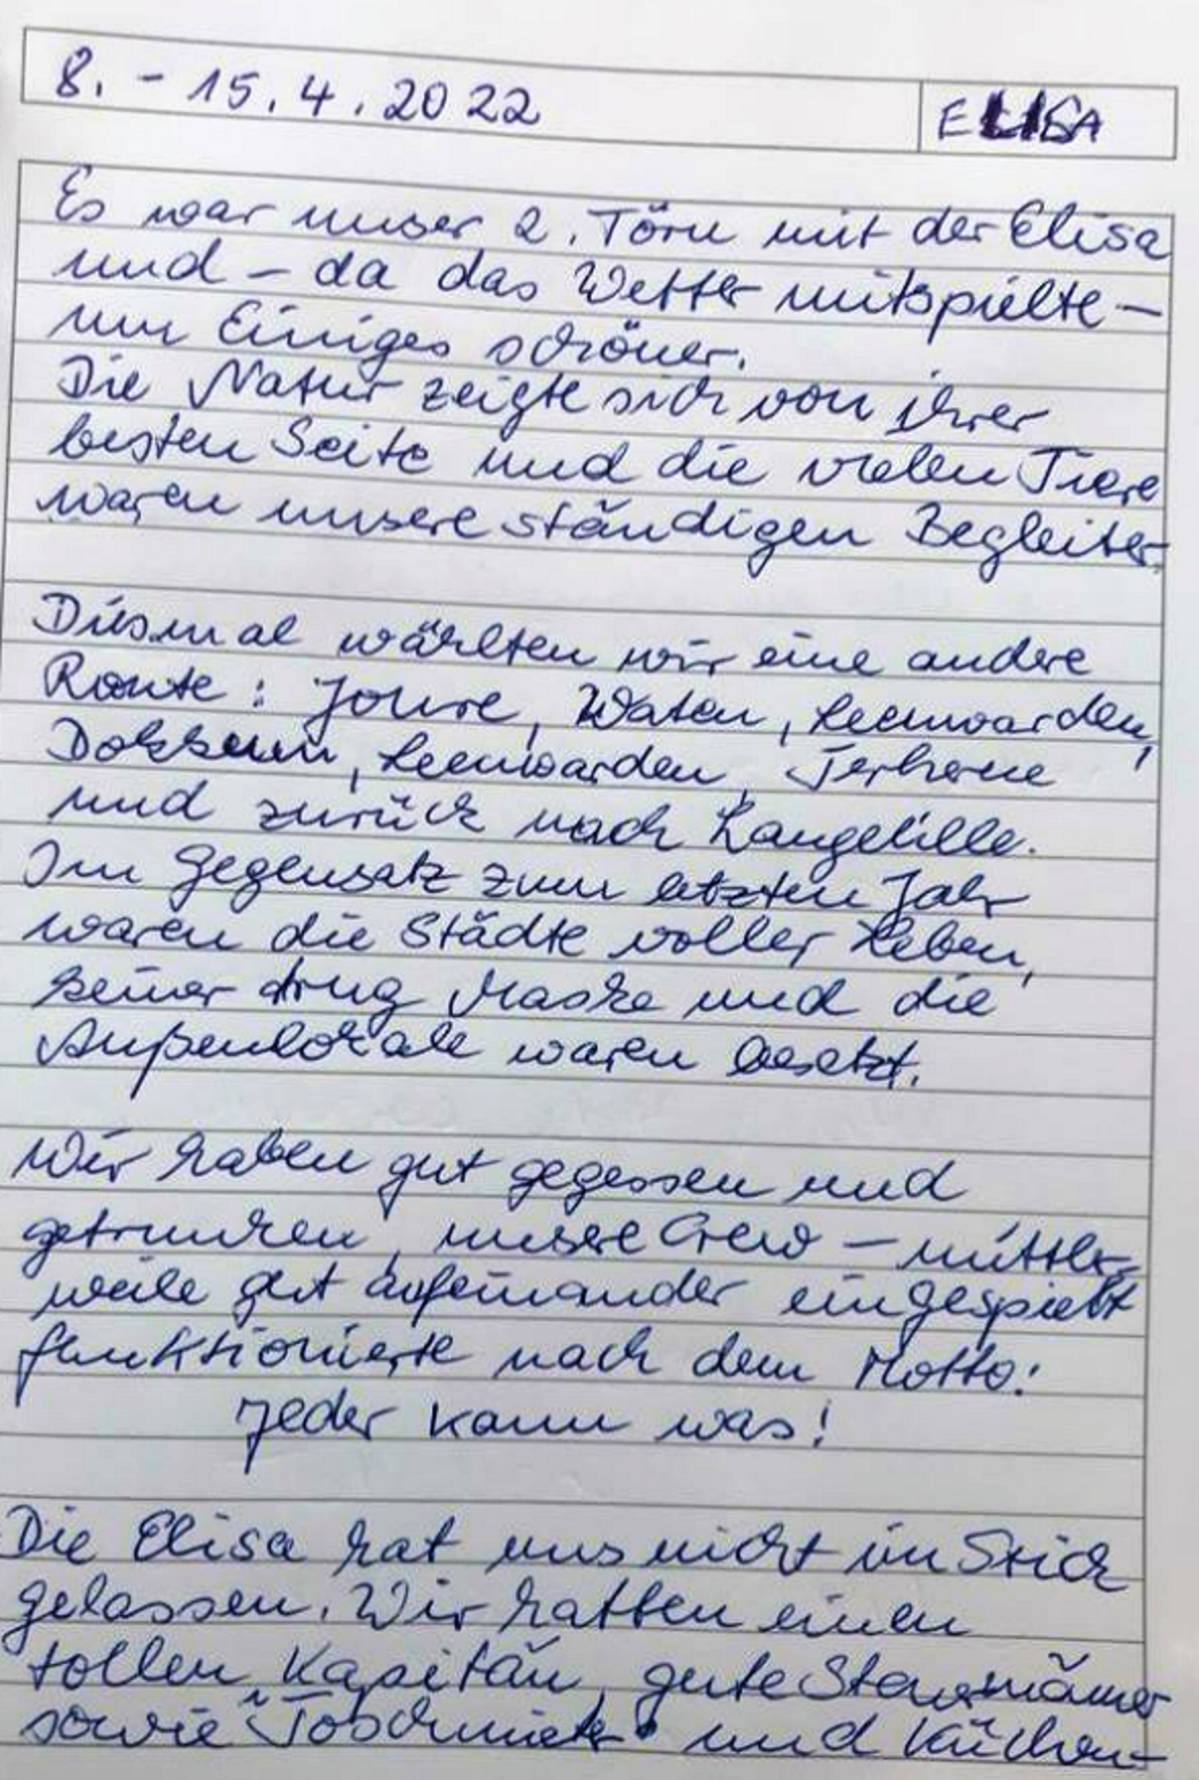 8. - 15.4.2022
ELISA
Es war unser 2. Törn mit der Elisa
und – da das Wetter mitspielte –
um Einiges schöner.
Die Natur zeigte sich von ihrer
besten Seite und die vielen Tiere
waren unsere ständigen Begleiter.
Diesmal wählten wir eine andere
Route: Joure, Waten, Leeuwarden,
Dokkum, Leeuwarden, Terherne
und zurück nach Langelille.
Im Gegensatz zum letzten Jahr
waren die Städte voller Leben,
keiner trug Maske und die
Außenlokale waren besetzt.
Wir haben gut gegessen und
getrunken, unsere Crew – mittler-
weile gut aufeinander eingespielt
funktionierte nach dem Motto:
Jeder kann was!
Die Elisa hat uns nicht im Stich
gelassen. Wir hatten einen
tollen Kapitän, gute Steuermänner
sowie "und Küchen-